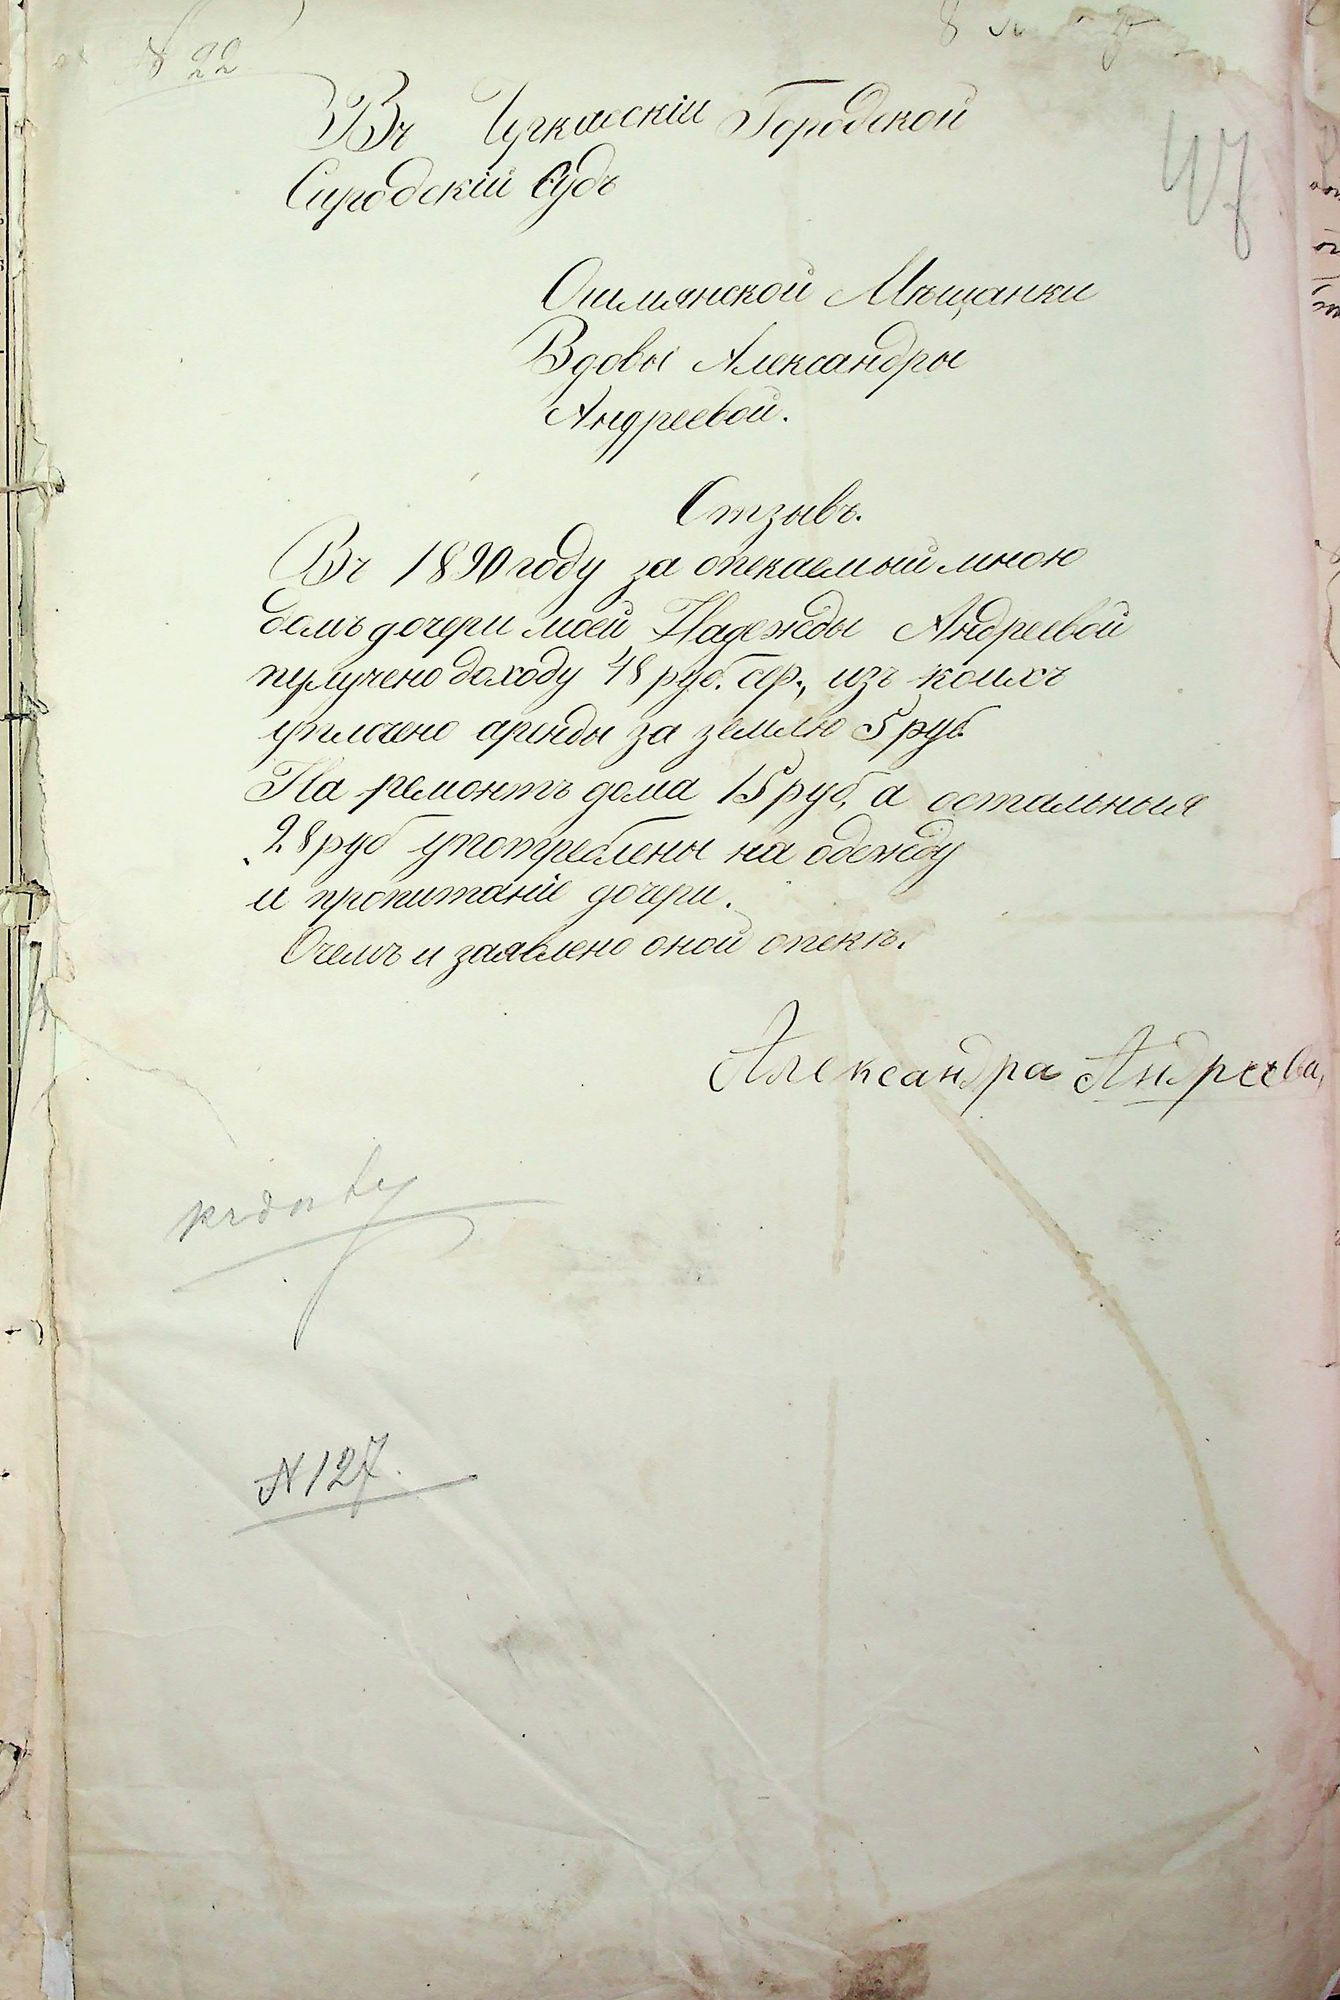 № 22
Въ Городской
Сиродскій Судъ
47
Ошмянской Мѣщанки
Вдовы Александры
Андреевой.
Отзывъ.
Въ 1890 году за опекаемый мною
домъ дочери моей Надежды Андреевой
пулучено доходу 48 руб. сер., изъ коихъ
уплочено аренды за землю 5 руб
На ремонтъ дома 15 руб, а остальныя
28 руб употреблены на одежду
и пропитаніе дочери.
Очемъ и заявлено оной опекѣ.
Александра Андреева,
№ 127.